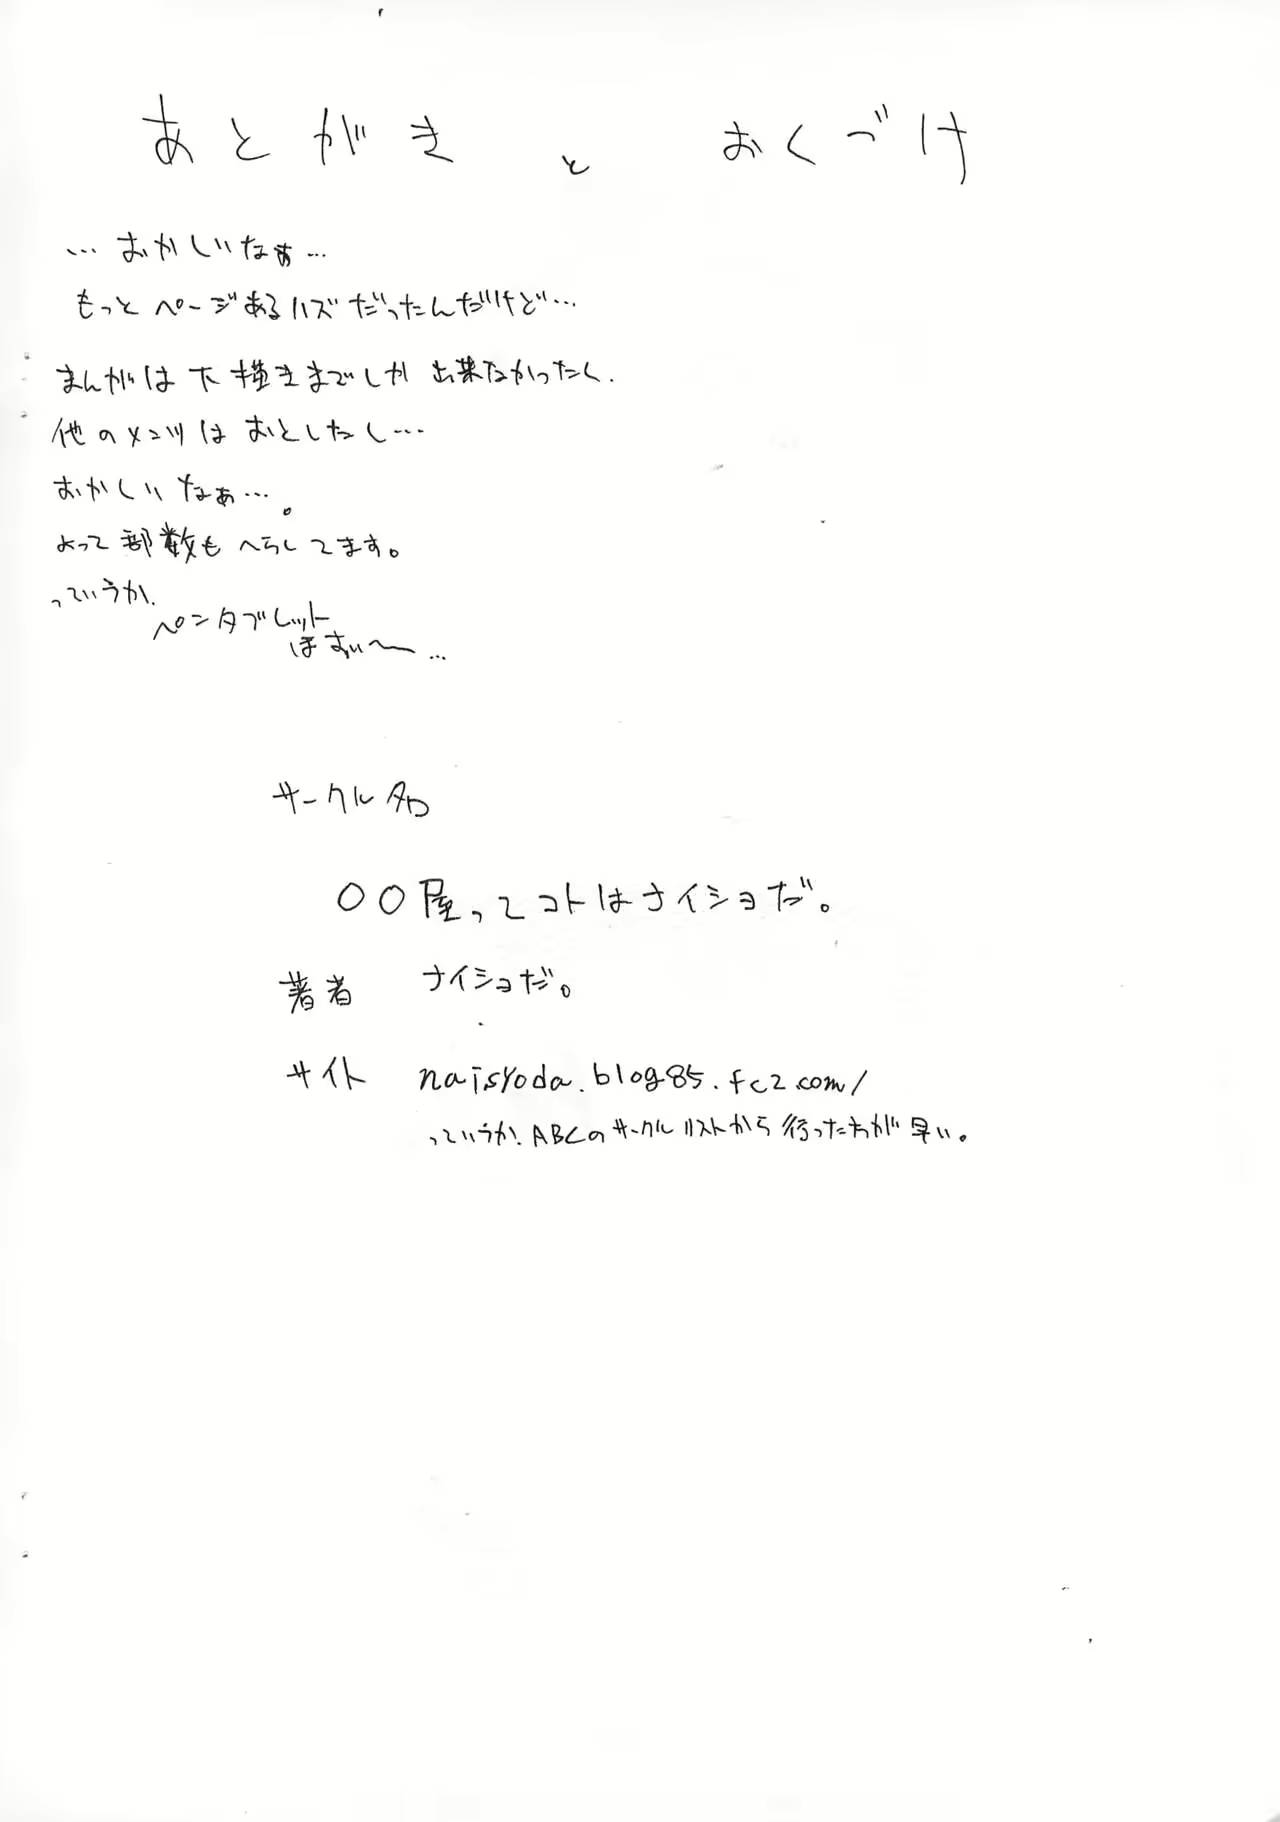 あとがき と おくづけ
…おかしいなぁ…
もっとページあるハズだったんだけど…
まんがは下描きまでしか出来なかったく.
他のメンツはおとしたし…
おかしいなぁ…。
よって部数もへらしてます。
っていうか、
ペンタブレット
ほすぃ〜…
サークル名
〇〇屋ってコトはナイショだ。
著者 ナイショだ。
サイト naisyoda.blog85.fc2.com/
っていうか、ABCのサークルリストから行った方が早い。